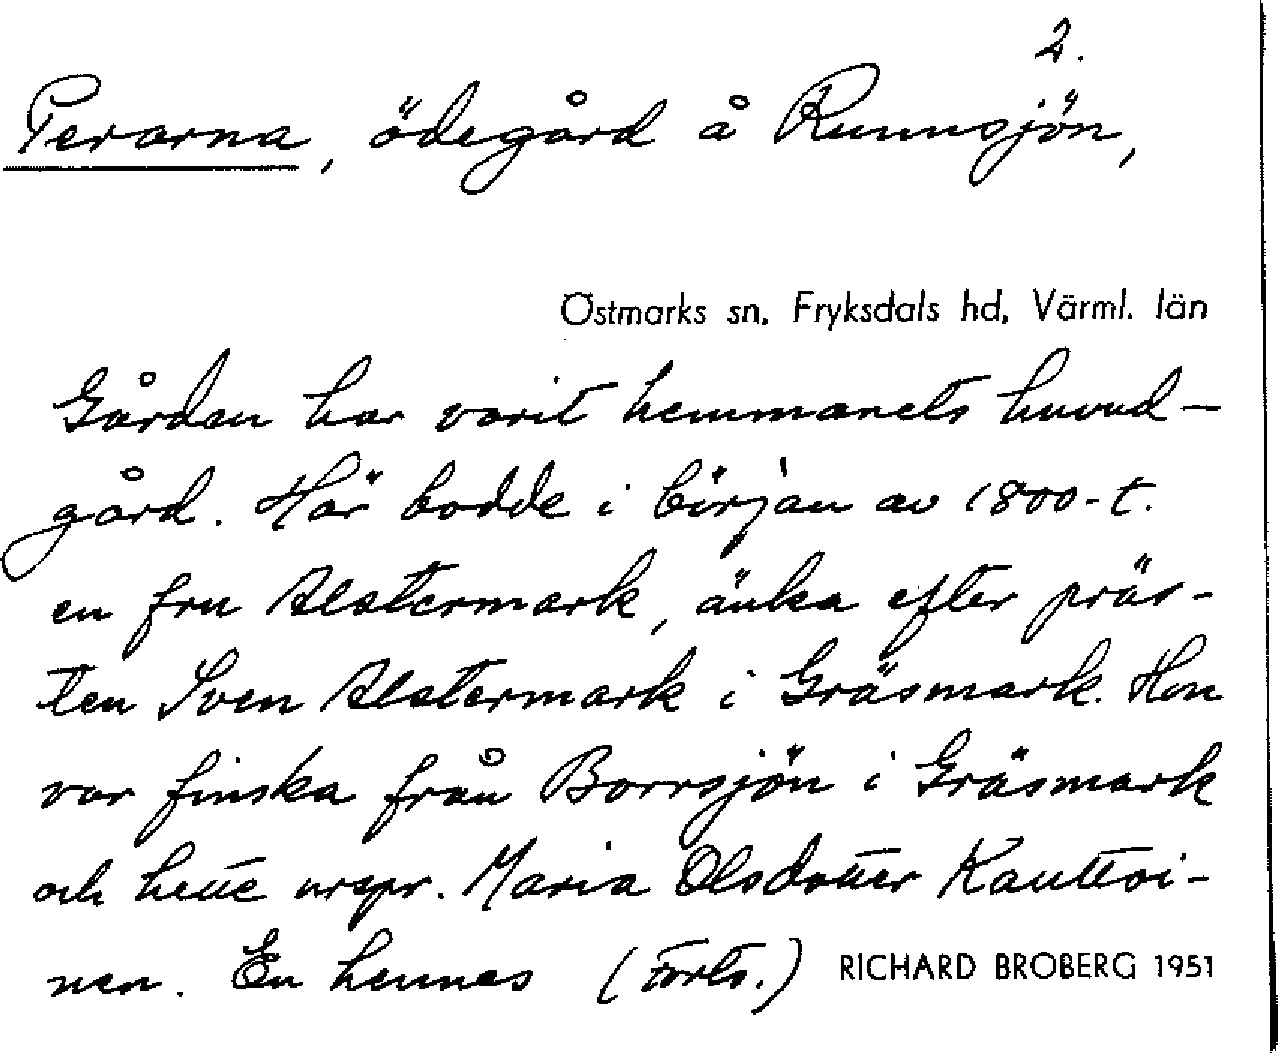 2.
Perarna, ödegård å Runnsjön,
Östmarks sn, Fryksdals hd, Värml. län
Gården har varit hemmanets huvud-
gård. Här bodde i början av 1800-t.
en fru Alstermark, änka efter präs-
ten Sven Alstermark i Gräsmark. Hon
var finska från Borrsjön i Gräsmark
och hette urspr. Maria Olsdotter Kauttoi-
nen. En hennes (Forts.) RICHARD BROBERG 1951